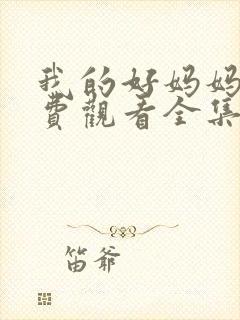 我的好妈妈
费觀看全集
笛爷